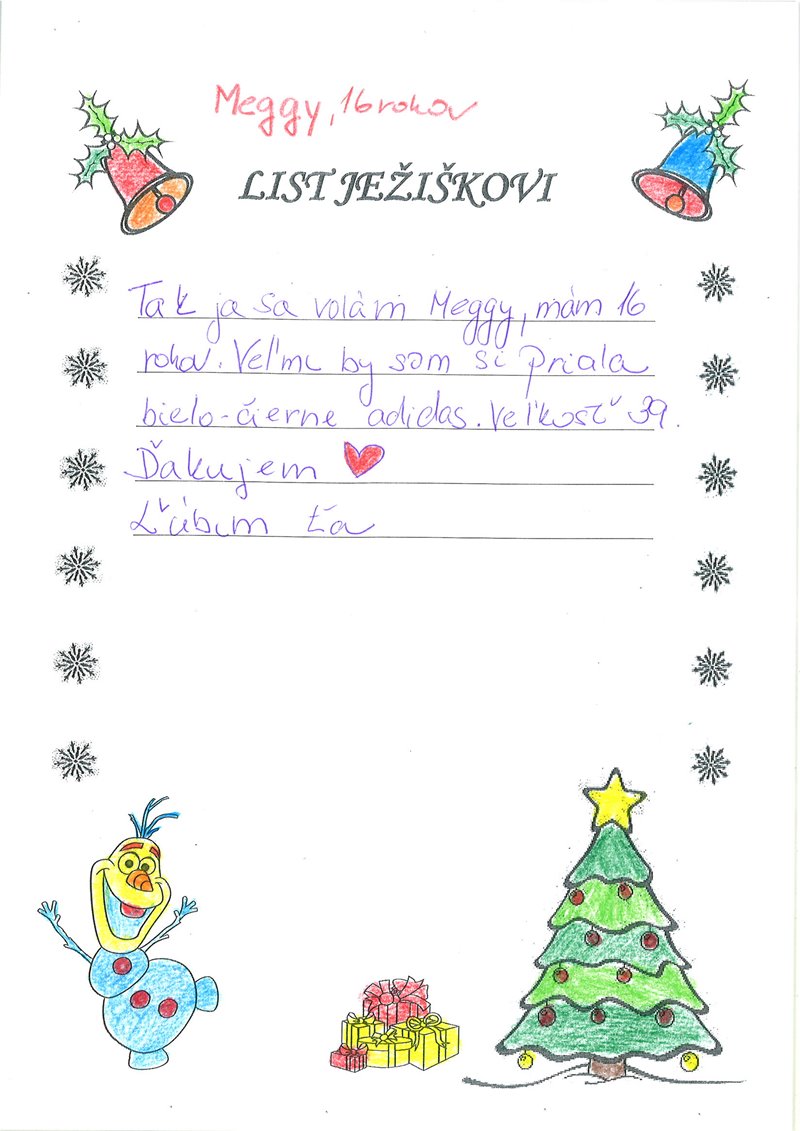 Meggy, 16 rokov
LIST JEŽIŠKOVI
Tak ja sa volám Meggy, mám 16
rokov. Veľmi by som si priala
bielo-čierne adidas. Veľkosť 39.
Ďakujem
Ľúbim ťa